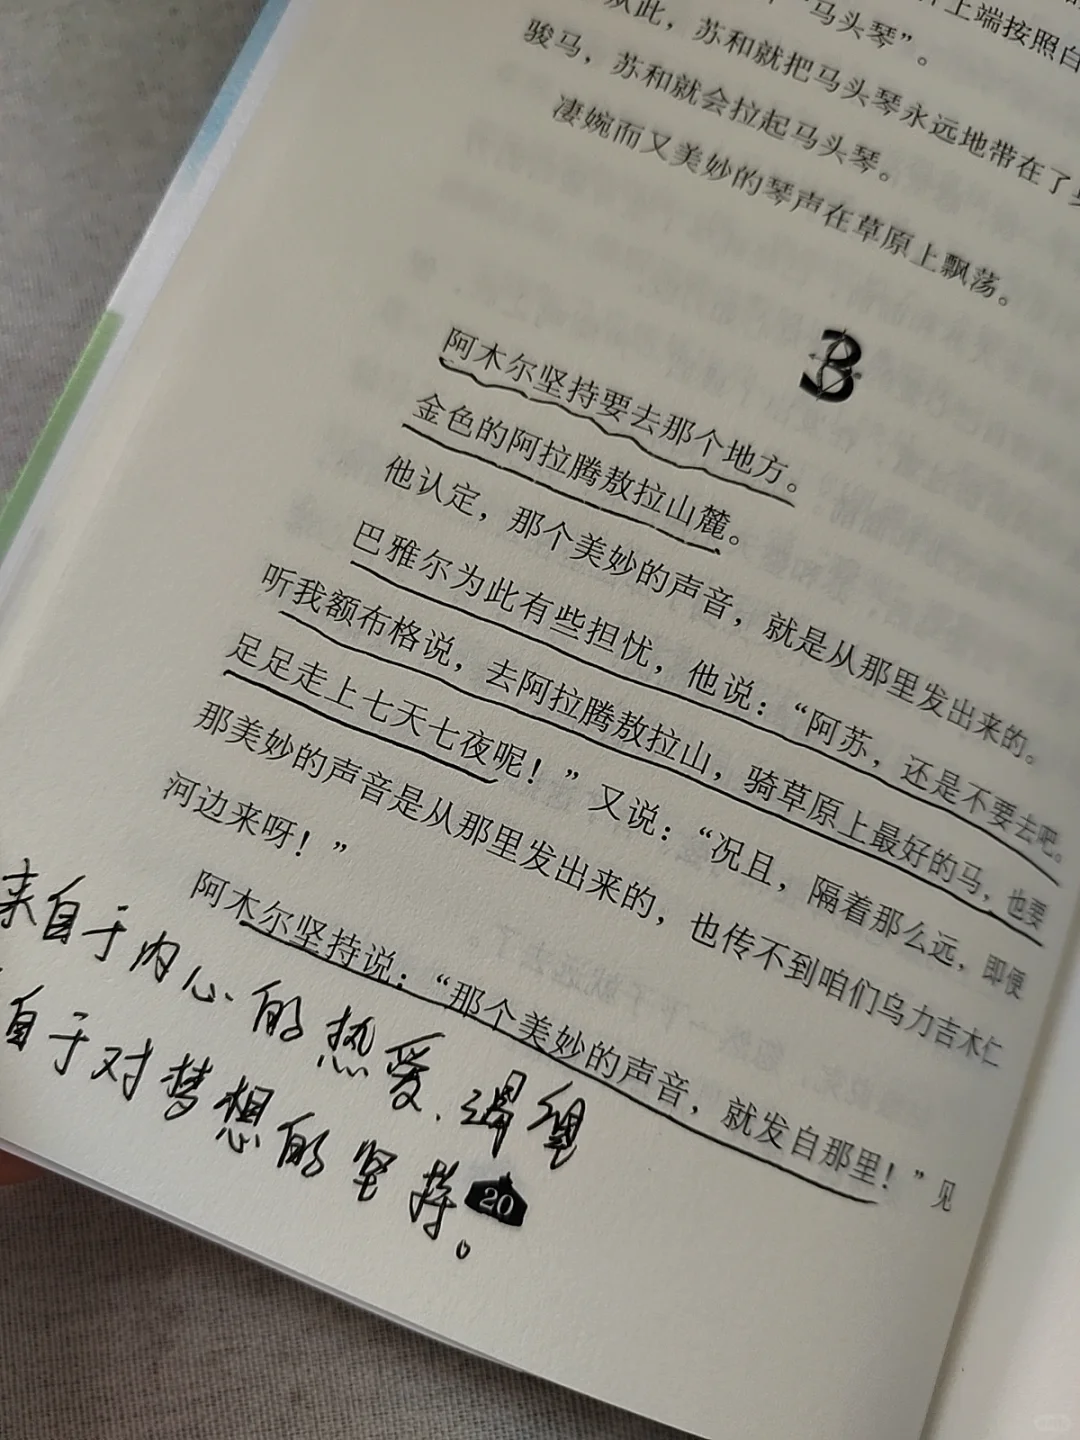 “马头琴”。
上端按照自
从此，苏和就把马头琴永远地带在了
骏马，苏和就会拉起马头琴。
凄婉而又美妙的琴声在草原上飘荡。
3
阿木尔坚持要去那个地方。
金色的阿拉腾敖拉山麓。
他认定，那个美妙的声音，就是从那里发出来的。
巴雅尔为此有些担忧，他说：“阿苏，还是不要去吧。
听我额布格说，去阿拉腾敖拉山，骑草原上最好的马，也要
足足走上七天七夜呢！”又说：“况且，隔着那么远，即便
那美妙的声音是从那里发出来的，也传不到咱们乌力吉木仁
河边来呀！”
阿木尔坚持说：“那个美妙的声音，就发自那里！”见
来自于内心的热爱、渴望
自于对梦想的坚持。
20